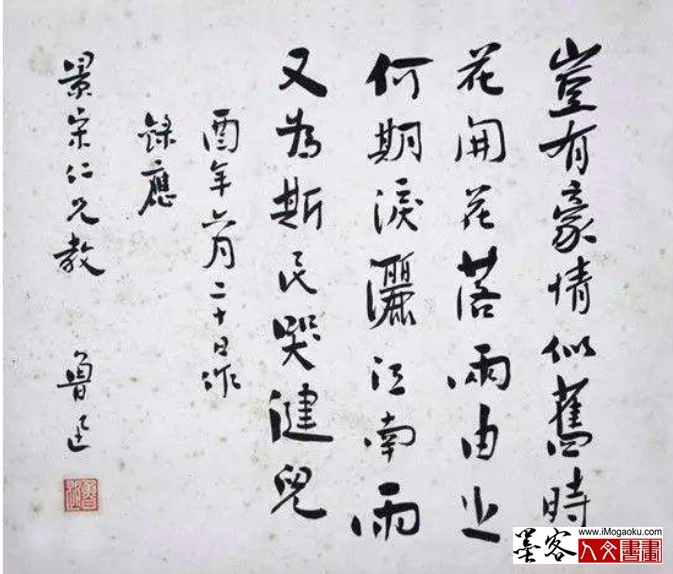 豈有豪情似舊時
花開花落兩由之
何期淚灑江南雨
又為斯民哭健兒
酉年六月二十日作
錄應
景宋仁兄教
魯迅
墨客
www.iMogaoku.com
人文書畫